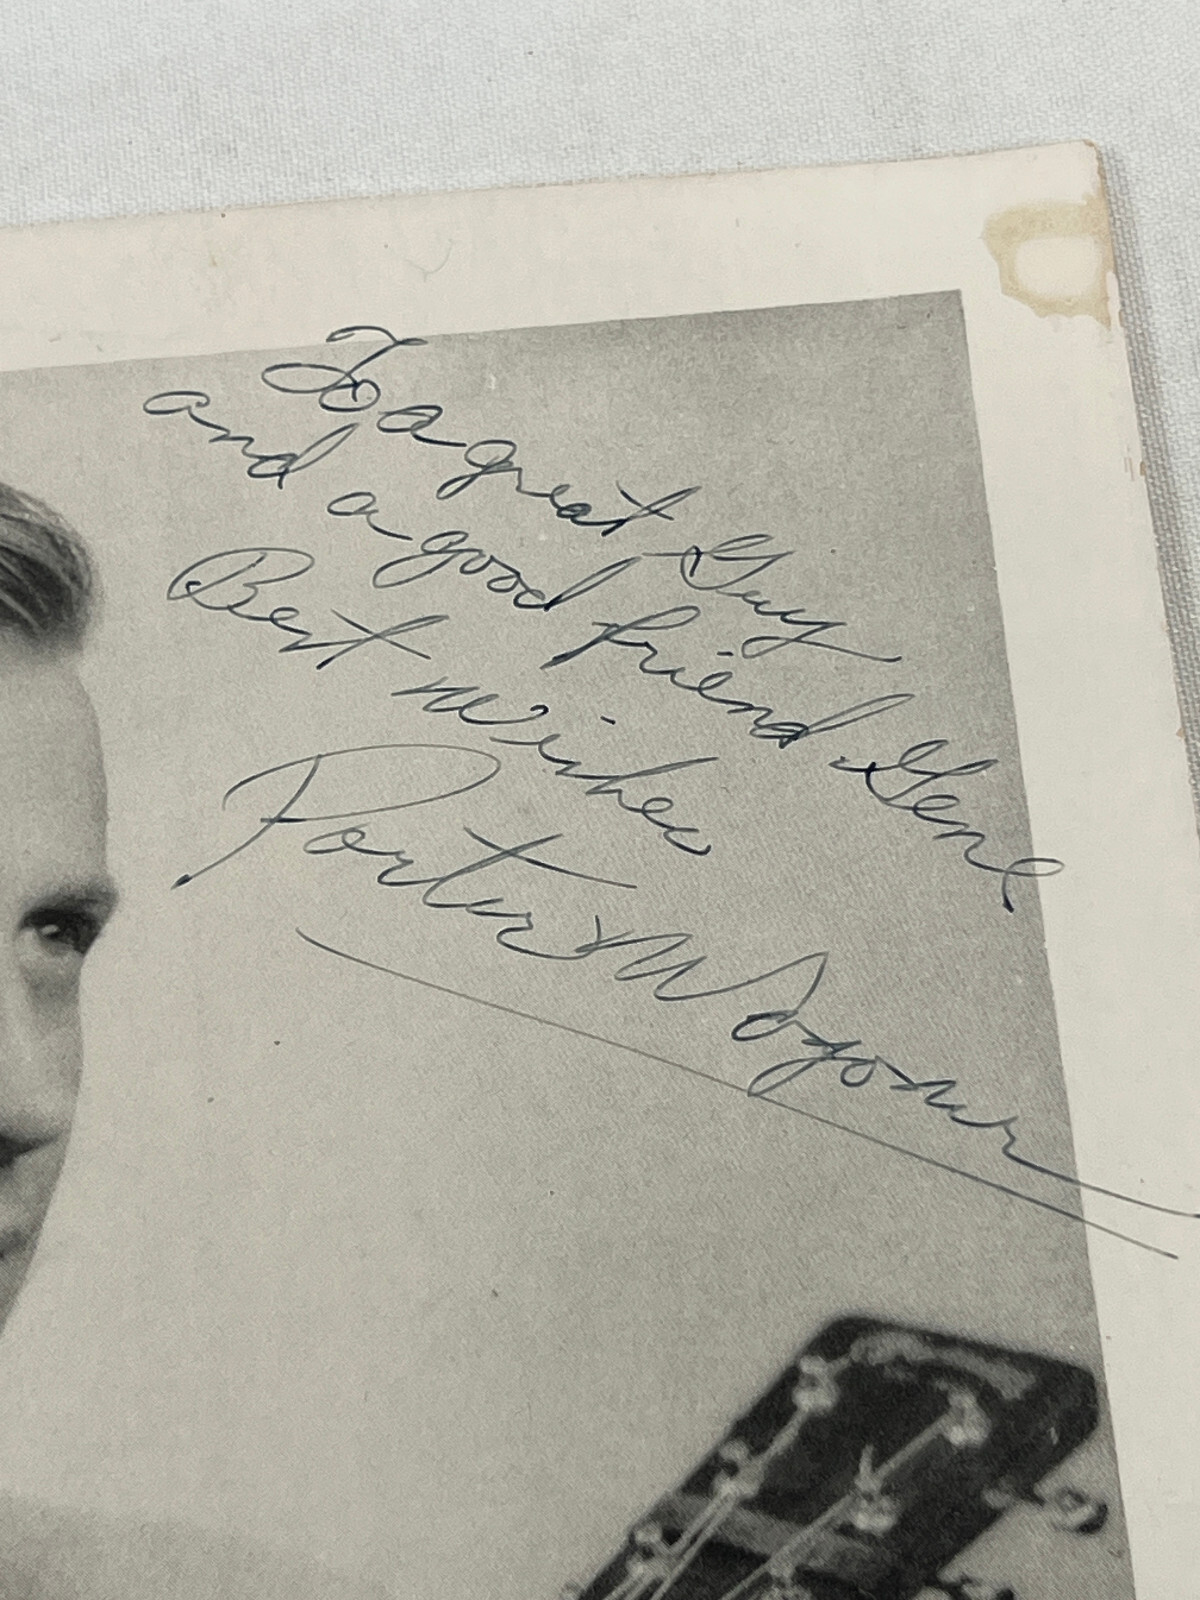 To a great Guy
and a good friend Gene
Best Wishes
Porter Wagoner